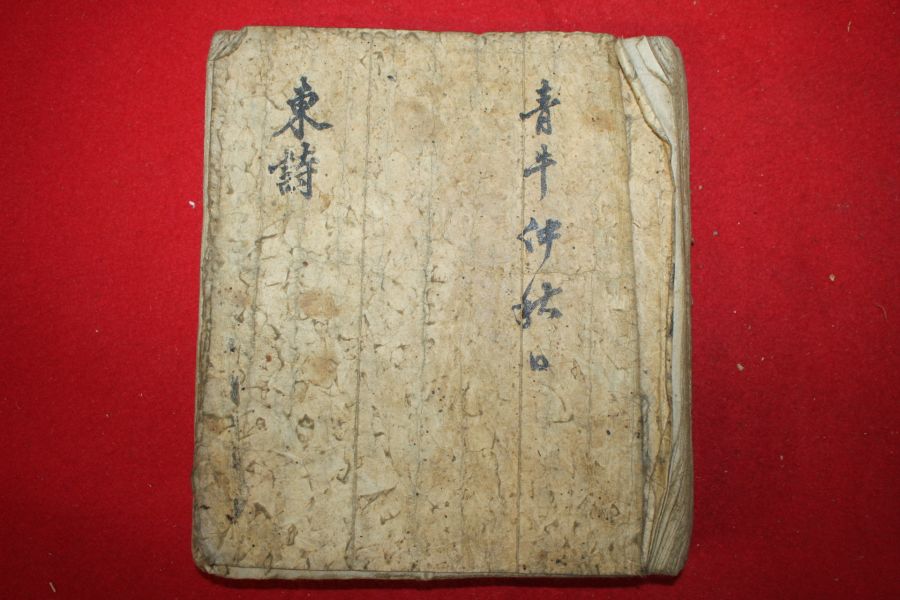 青牛仲秋日
東詩